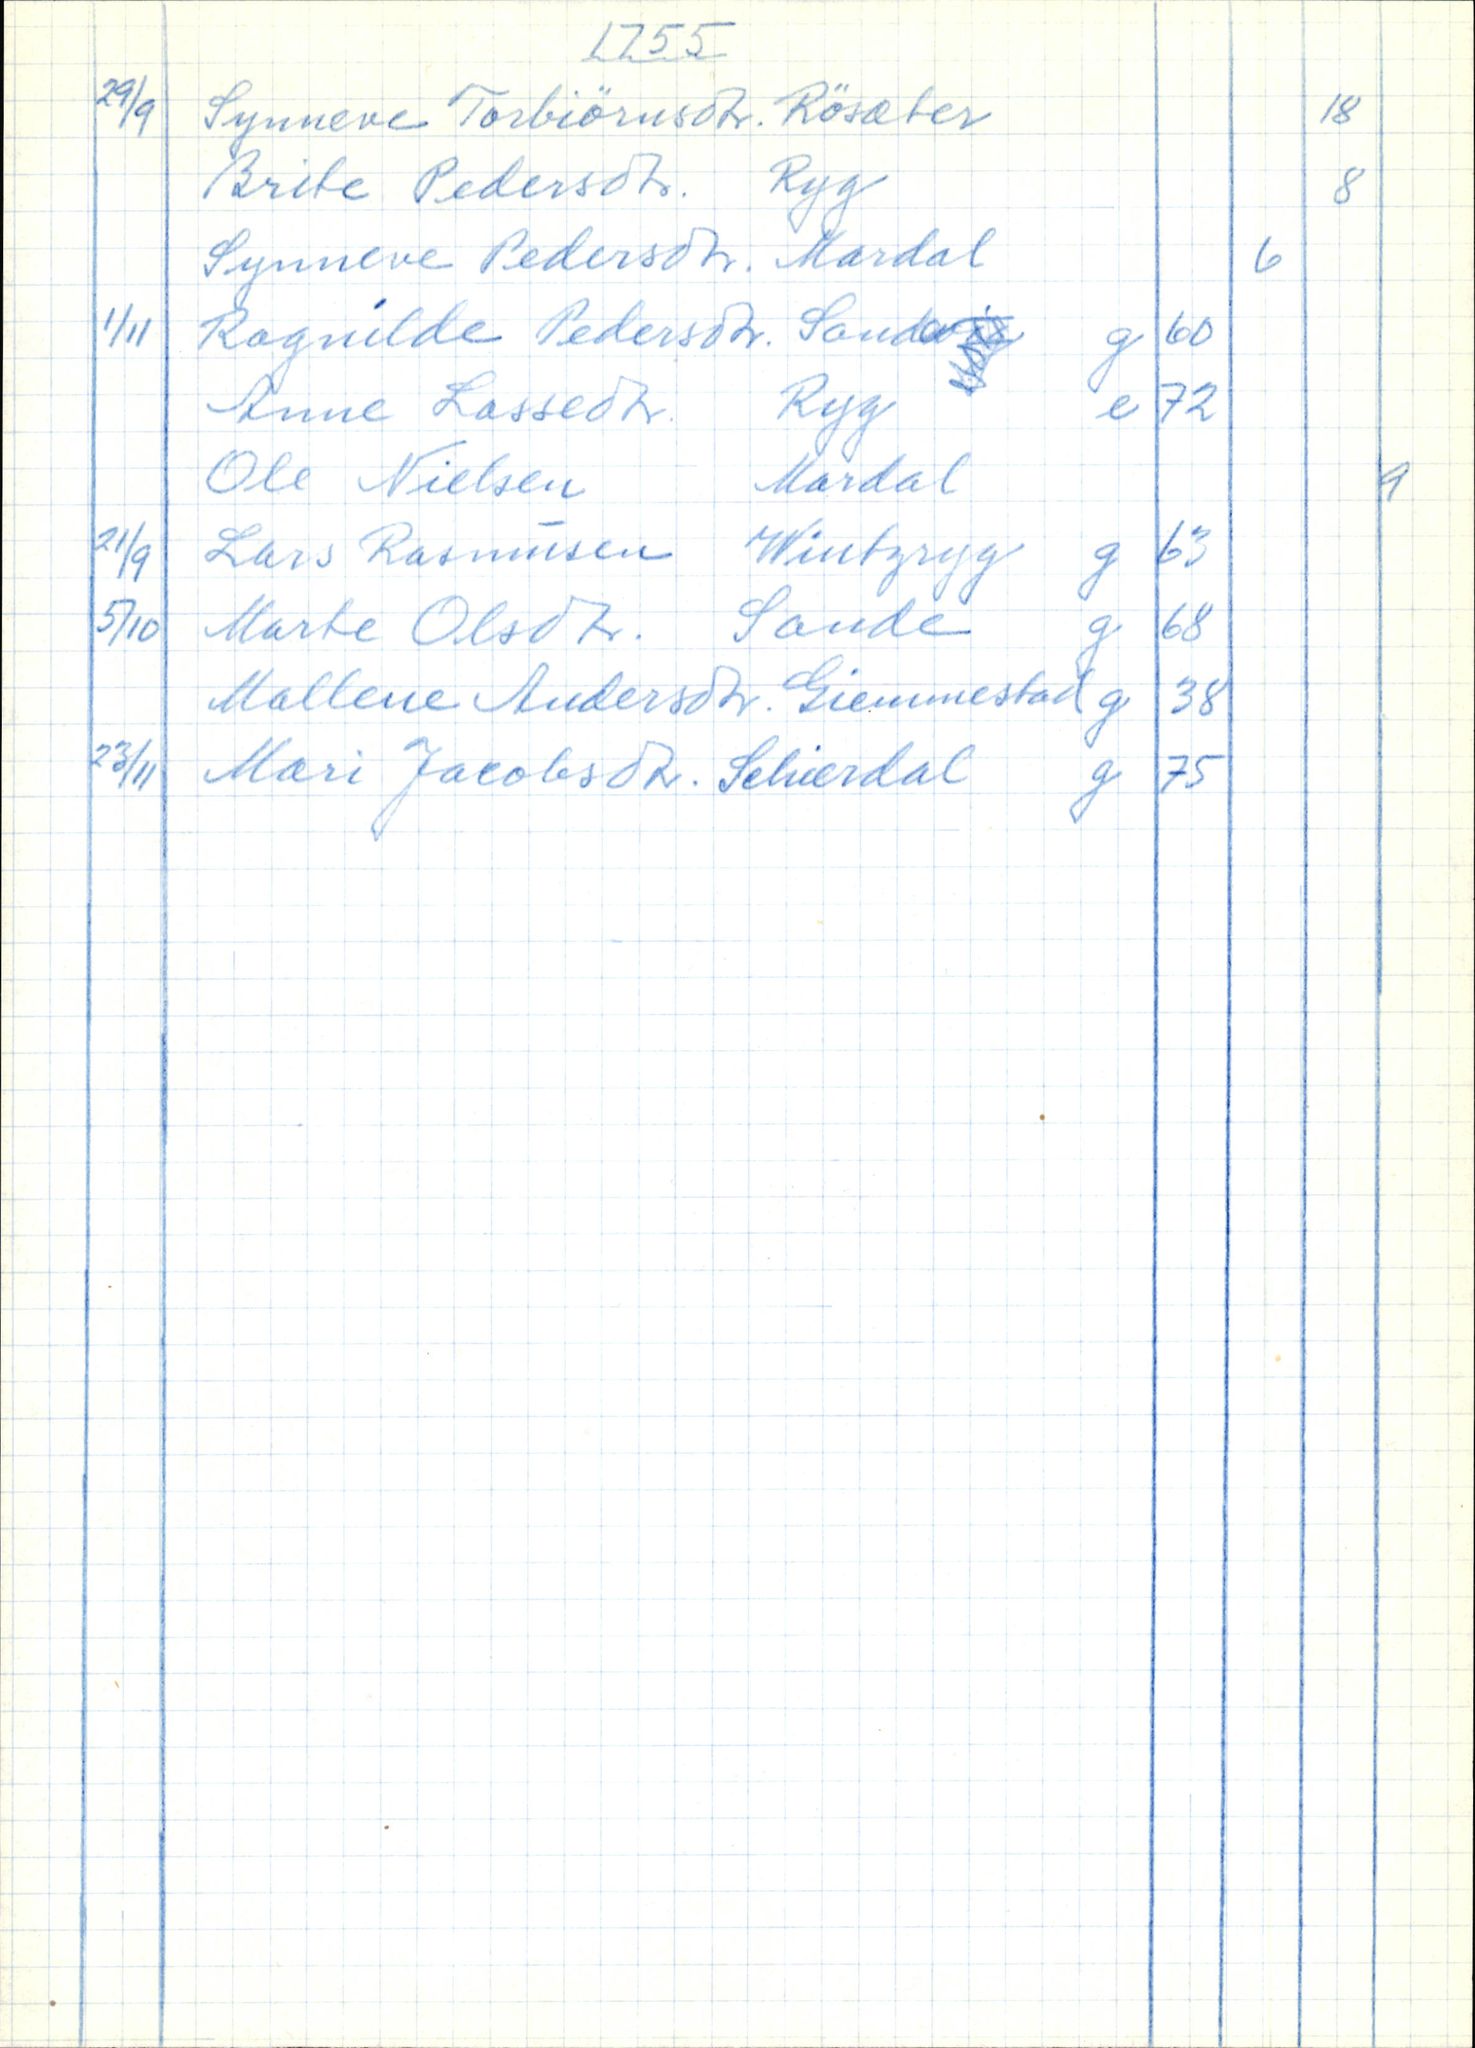 1755
29/9 Synneve Torbiörnsdtr. Rösæter 18
Brite Pedersdtr. Ryg 8
Synneve Pedersdtr. Mardal 6
1/11 Ragnilde Pedersdtr. g 60
Anne Lassedtr. Ryg e 72
Ole Nielsen Mardal 9
21/9 Lars Rasmusen Wintzryg g 63
5/10 Marte Olsdtr. Sande g 68
Mallene Andersdtr. Giemmestad g 38
23/11 Mari Jacobsdtr. Schierdal g 75